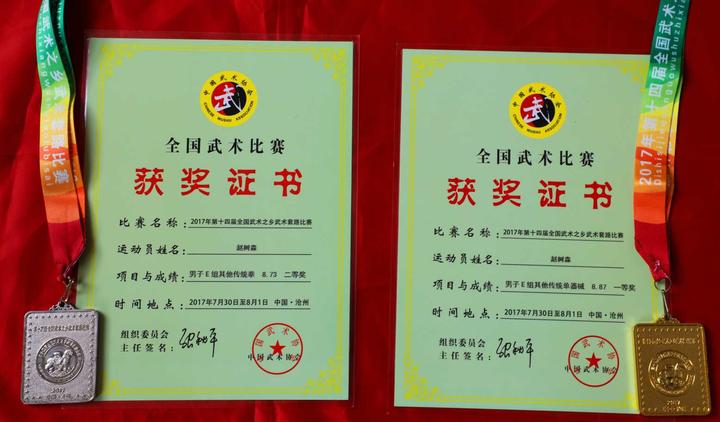 中国武术协会
CHINESE WUSHU ASSOCIATION
武
全国武术比赛
获奖证书
比赛名称：2017年第十四届全国武术之乡武术套路比赛
运动员姓名：赵树森
项目与成绩：男子E组其他传统拳 8.73 二等奖
时间地点：2017年7月30日至8月1日 中国·沧州
组织委员会
主任签名：
中国武术协会
中国武术协会
武术之乡武
套路比赛
2017
中国武术协会
CHINESE WUSHU ASSOCIATION
武
全国武术比赛
获奖证书
比赛名称：2017年第十四届全国武术之乡武术套路比赛
运动员姓名：赵树森
项目与成绩：男子E组其他传统单器械 8.87 一等奖
时间地点：2017年7月30日至8月1日 中国·沧州
组织委员会
主任签名：
中国武术协会
中国武术协会
2017年第十四届全国武术
2017